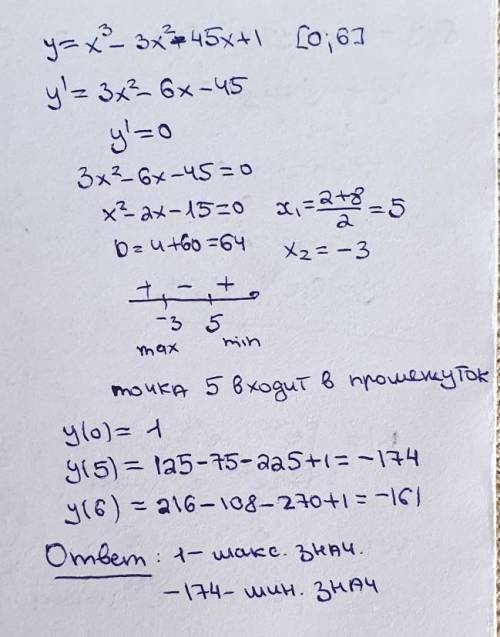 y = x³ - 3x² - 45x + 1 [0; 6]
y' = 3x² - 6x - 45
y' = 0
3x² - 6x - 45 = 0
x² - 2x - 15 = 0 x₁ = (2+8)/2 = 5
D = 4 + 60 = 64 x₂ = -3
+ - +
-3 5
max min
точка 5 входит в промежуток
y(0) = 1
y(5) = 125 - 75 - 225 + 1 = -174
y(6) = 216 - 108 - 270 + 1 = -161
Ответ: 1 - макс. знач.
-174 - мин. знач